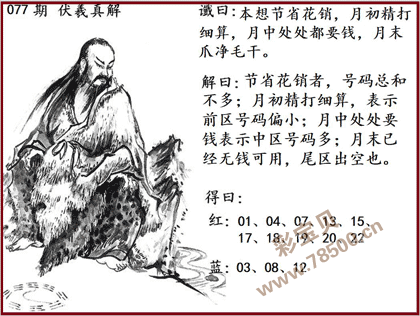 077 期 伏羲真解
谶曰：本想节省花销，月初精打
细算，月中处处都要钱，月末
爪净毛干。
解曰：节省花销者，号码总和
不多；月初精打细算，表示
前区号码偏小；月中处处要
钱表示中区号码多；月末已
经无钱可用，尾区出空也。
得曰：
红：01、04、07、13、15、
17、18、19、20、22
蓝：03、08、12
彩宝贝
www.78500.cn